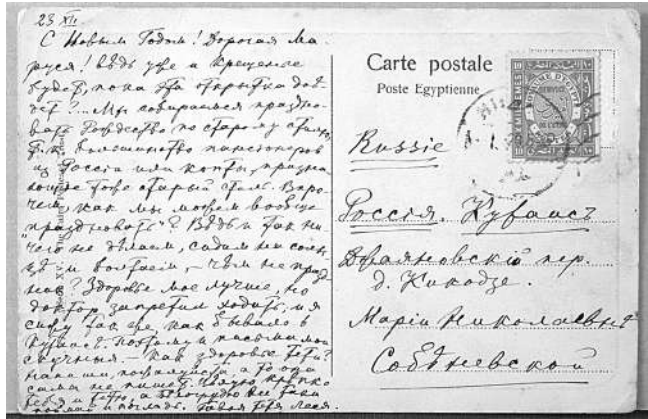 23 XII
С Новым Годом! Дорогая Ма-
руся! Ведь уже и крещение
будет, пока эта открытка дой-
дет?... Мы собираемся праздно-
вать Рождество по старому стилю,
т. к. большинство пансионеров
из России или копты, праздну-
ющие тоже старый стиль. Впро-
чем, как мы можем вообще
"праздновать"? Ведь и так ни-
чего не делаем, сидим на солн-
це и болтаем, – чем не празд-
ник? Здоровье мое лучше, но
доктор запретил ходить, и я
сижу так же, как бывало в
Кутаисе. Поэтому и письма мои
скучныя. – Как здоровье
пожалуйста, а то она
сама не пишет. Целую крепко
тебя и
Твоя тетя Леся.
Carte postale
Poste Egyptienne
10 MILLIEMES 10
Russie
Россія. Кутаисъ
Дворяновскій пер.
д. Кикодзе.
Маріи Николаевнѣ
Собѣневской